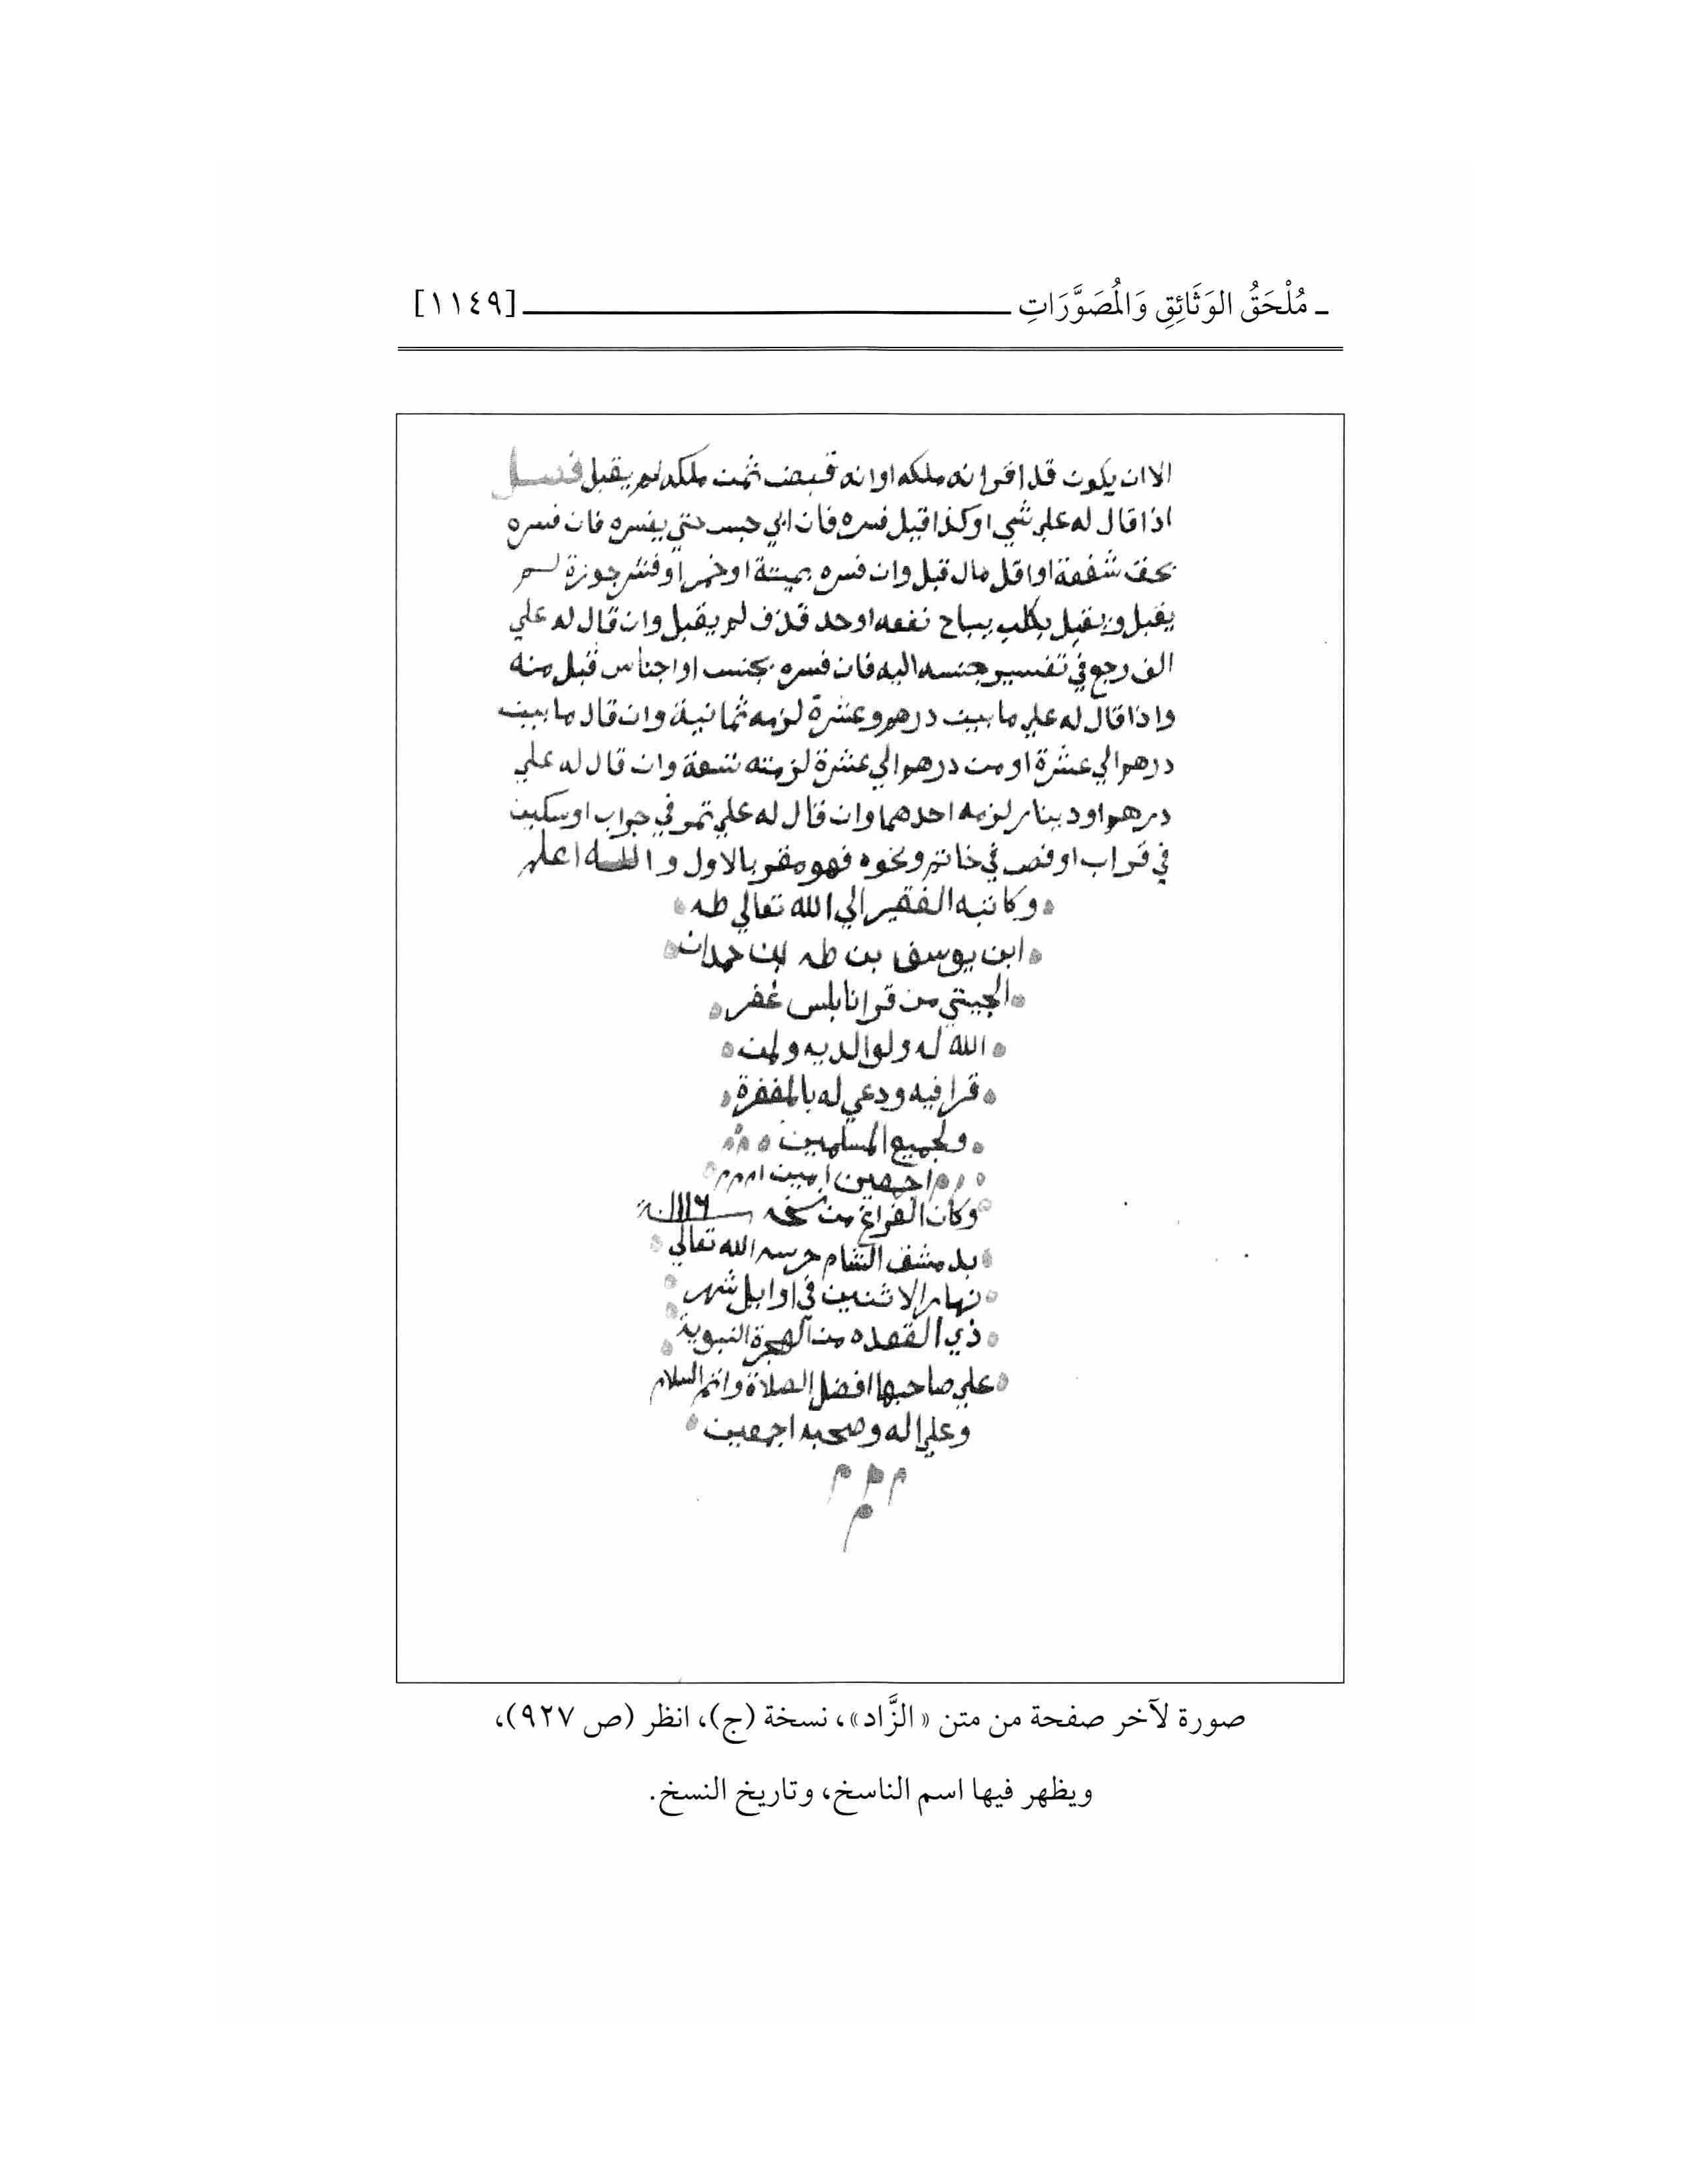 ـ مُلْحَقُ الوَثَائِقِ وَالمُصَوَّرَاتِ ـ [١١٤٩]
الا ان يكون قد اقر انه ملكه او انه قبض ثمن ملكه لم يقبل فصل
اذا قال له علي شي او كذا قيل فسره فان ابي حبس حتي يفسره فان فسره
بحق شفعة او اقل مال قبل وان فسره بميتة او خمر او قشر جوزة لم
يقبل ويقبل بكلب يباح نفعه او حد قذف لم يقبل وان قال له علي
الف رجع في تفسير جنسه اليه فان فسره بجنس او اجناس قبل منه
واذا قال له علي ما بين درهم وعشرة لزمه ثمانية وان قال ما بين
درهم الي عشرة او من درهم الي عشرة لزمته تسعة وان قال له علي
درهم او دينار لزمه احدهما وان قال له علي تمر في جراب او سكين
في قراب او فص في خاتم ونحوه فهو مقر بالاول والله اعلم
وكاتبه الفقير الي الله تعالي طه
ابن يوسف بن طه بن حمدان
الجيتي من قرا نابلس غفر
الله له ولوالديه ولمن
قرا فيه ودعي له بالمغفرة
ولجميع المسلمين
اجمعين امين
وكان الفراغ من نسخه سنة ١١١٦
بدمشق الشام حرسه الله تعالي
نهار الاثنين في اوايل شهر
ذي القعده من الهجرة النبوية
علي صاحبها افضل الصلاة واتم السلام
وعلي اله وصحبه اجمعين
م م م
م
صورة لآخر صفحة من متن «الزَّاد»، نسخة (ج)، انظر (ص ٩٢٧)،
ويظهر فيها اسم الناسخ، وتاريخ النسخ.